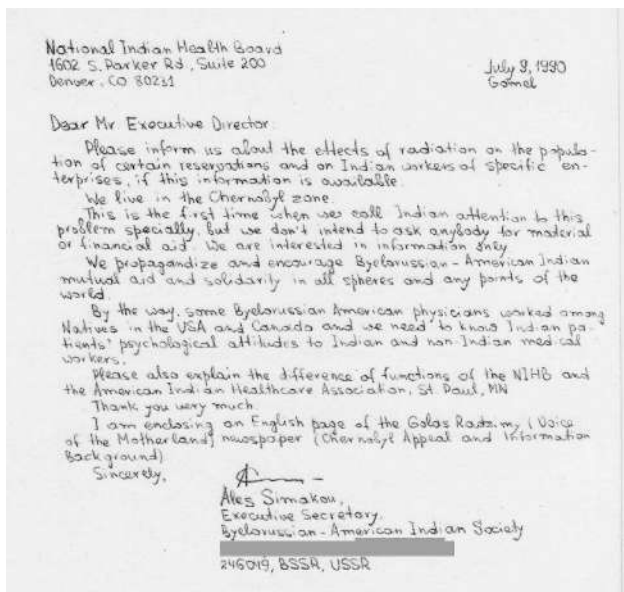 National Indian Health Board
1602 S. Parker Rd., Suite 200
Denver, CO 80231
July 9, 1990
Gomel
Dear Mr. Executive Director:
Please inform us about the effects of radiation on the popula-
tion of certain reservations and on Indian workers of specific en-
terprises, if this information is available.
We live in the Chernobyl zone.
This is the first time when we call Indian attention to this
problem specially, but we don't intend to ask anybody for material
or financial aid. We are interested in information only.
We propagandize and encourage Byelorussian-American Indian
mutual aid and solidarity in all spheres and any points of the
world.
By the way, some Byelorussian American physicians worked among
Natives in the USA and Canada and we need to know Indian pa-
tients' psychological attitudes to Indian and non-Indian medical
workers.
Please also explain the difference of functions of the NIHB and
the American Indian Healthcare Association, St. Paul, MN
Thank you very much.
I am enclosing an English page of the Golas Radzimy (Voice
of the Motherland) newspaper (Chernobyl Appeal and Information
Background)
Sincerely,
Ales Simakou,
Executive Secretary,
Byelorussian-American Indian Society
246049, BSSR, USSR